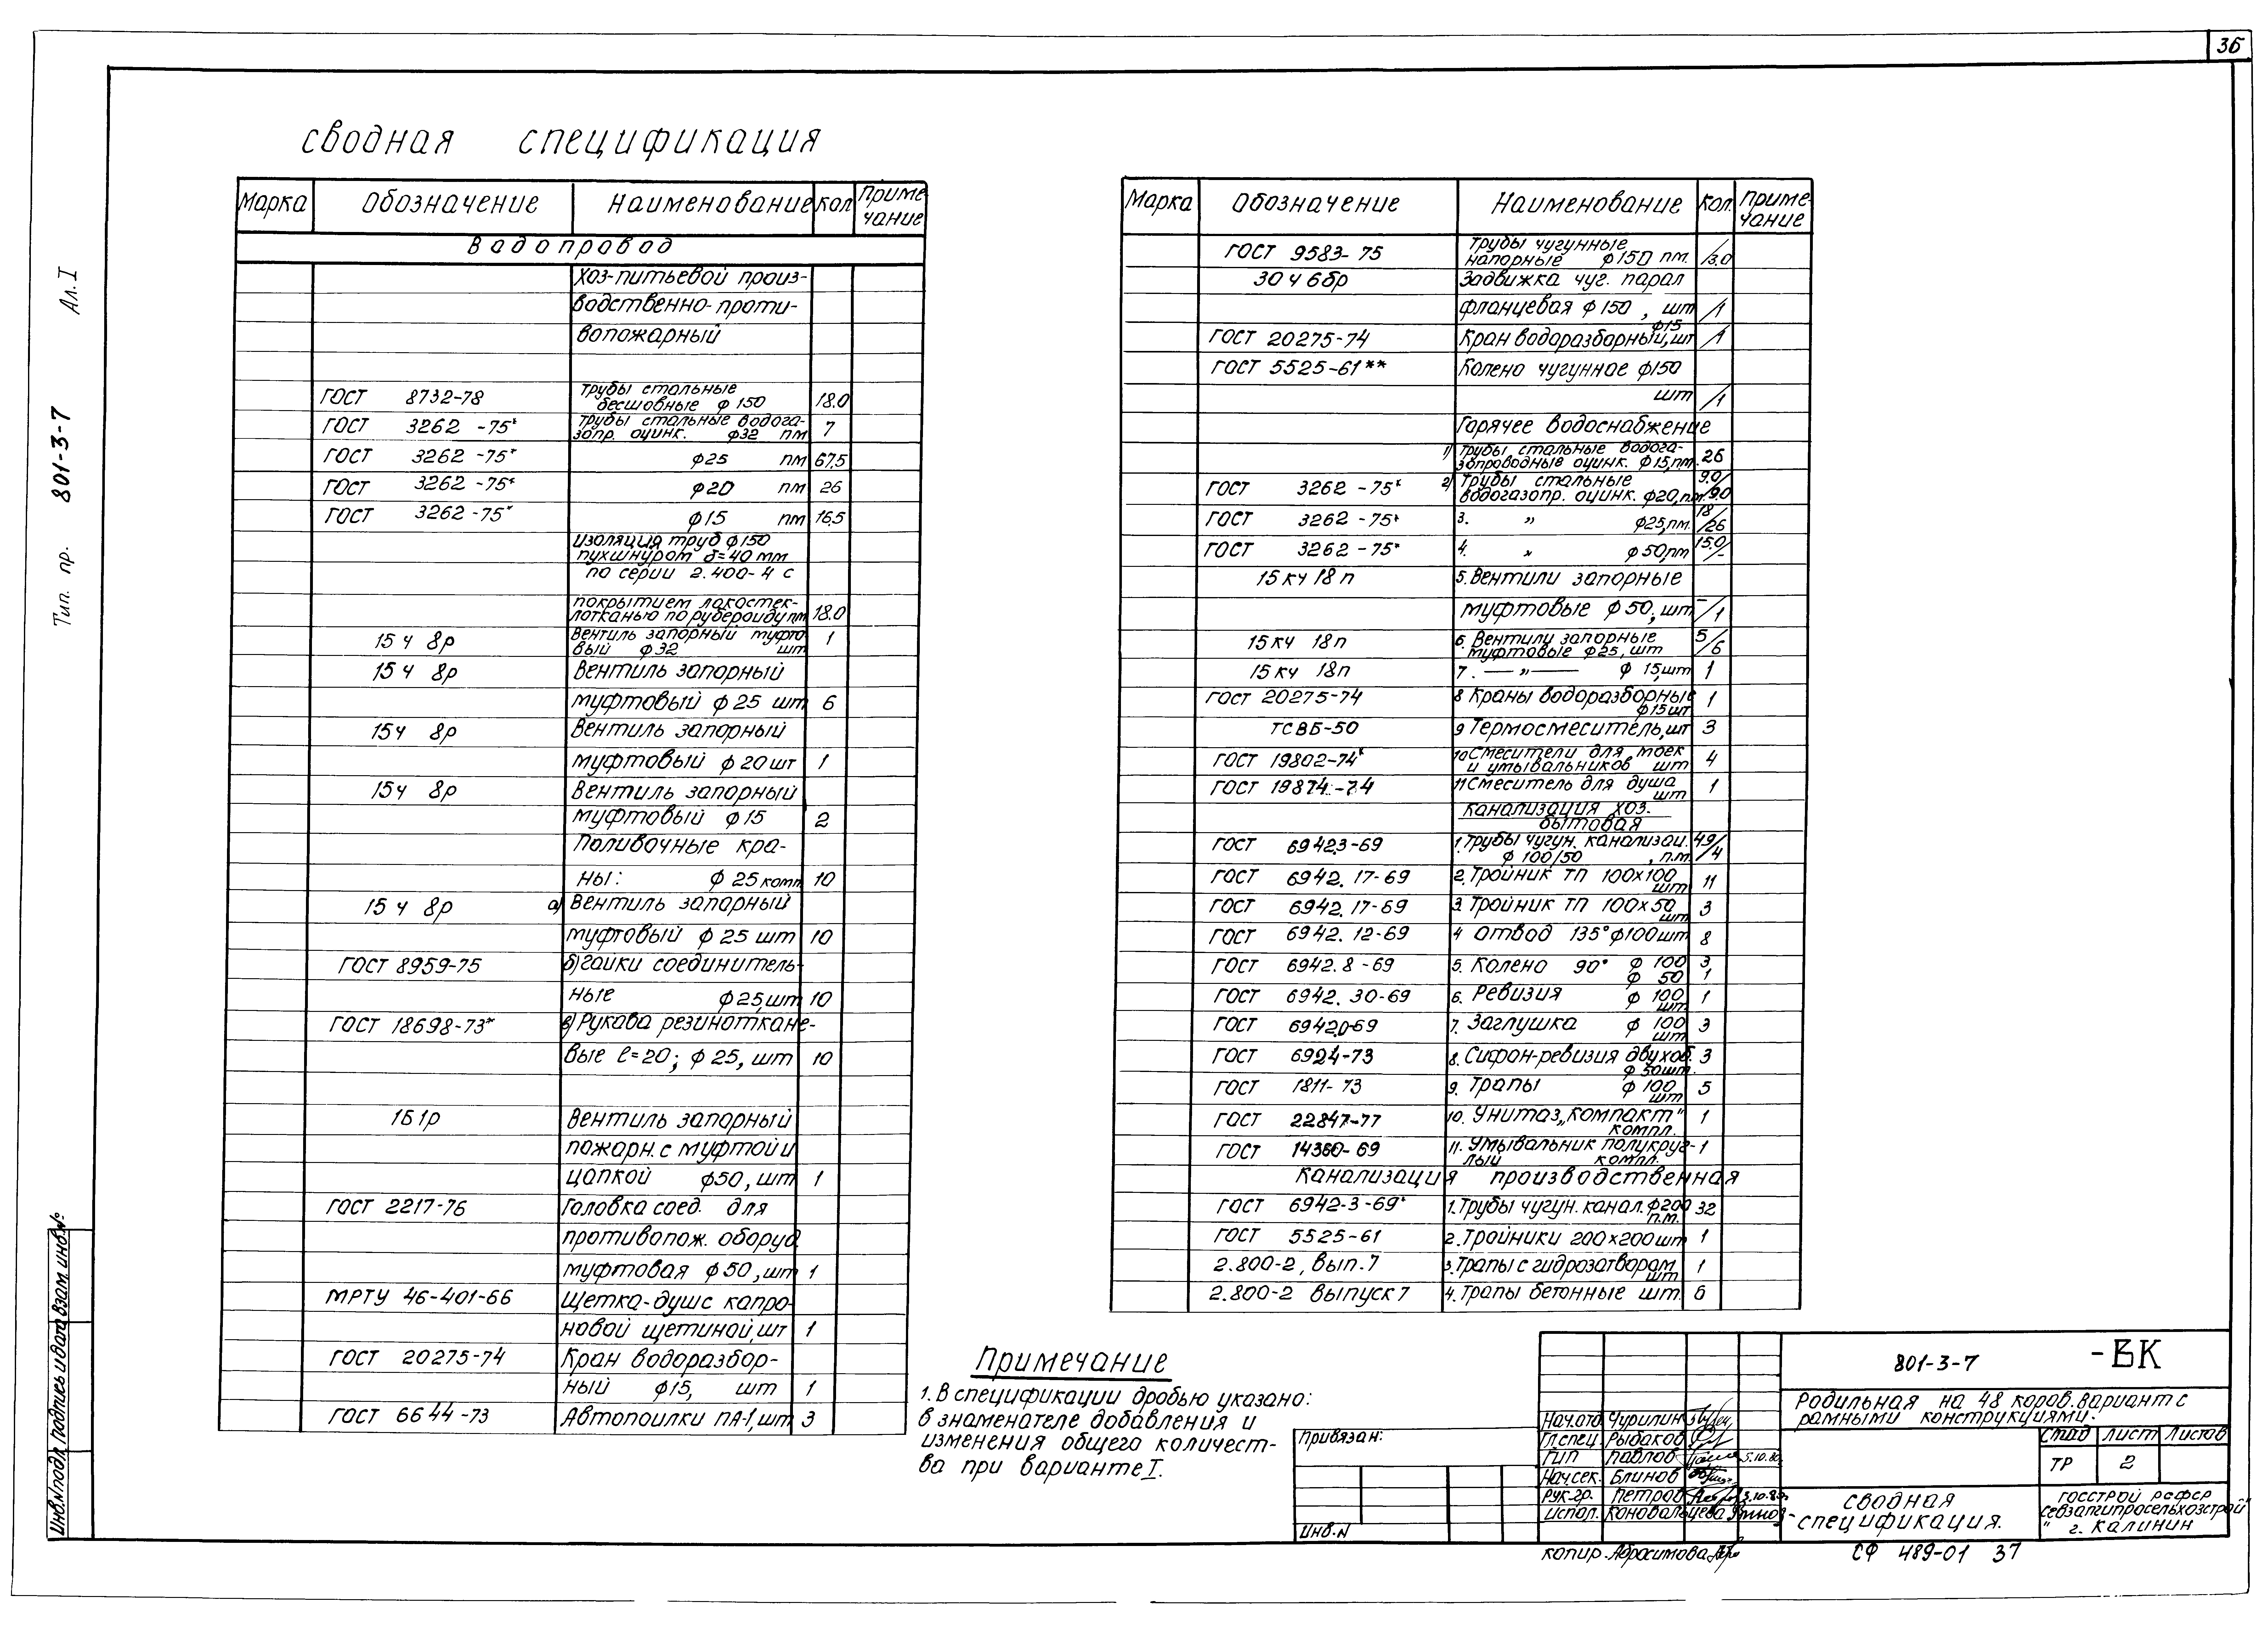 36
Тип. пр. 801-3-7 Ал. I
сводная спецификация
Марка Обозначение Наименование кол. Приме-
чание
Водопровод
Хоз-питьевой произ-
водственно-проти-
вопожарный
ГОСТ 8732-78 Трубы стальные
бесшовные ф 150 18.0
ГОСТ 3262-75* Трубы стальные водога-
зопр. оцинк. ф32 пм 7
ГОСТ 3262-75* ф25 пм 67,5
ГОСТ 3262-75* ф20 пм 26
ГОСТ 3262-75* ф15 пм 16,5
изоляция труб ф150
пухшнуром δ=40 мм
по серии 2.400-4 с
покрытием лакостек-
лотканью по рубероиду пм 18.0
15ч 8р Вентиль запорный муфто-
вый ф32 шт 1
15ч 8р Вентиль запорный
муфтовый ф 25 шт 6
15ч 8р Вентиль запорный
муфтовый ф 20 шт 1
15ч 8р Вентиль запорный
муфтовый ф15 2
Поливочные кра-
ны: ф 25 комп 10
15ч 8р а) Вентиль запорный
муфтовый ф 25 шт 10
ГОСТ 8959-75 б) гайки соединитель-
ные ф25, шт 10
ГОСТ 18698-73* в) Рукава резинoткане-
вые ℓ=20; ф 25, шт 10
1Б1р Вентиль запорный
пожарн. с муфтой и
цапкой ф50, шт 1
ГОСТ 2217-76 Головка соед. для
противопож. оборуд.
муфтовая ф 50, шт 1
МРТУ 46-401-66 Щетка-душ с капро-
новой щетиной, шт 1
ГОСТ 20275-74 Кран водоразбор-
ный ф15, шт 1
ГОСТ 6644-73 Автопоилки ПА-1, шт 3
Марка Обозначение Наименование Кол. Приме-
чание
ГОСТ 9583-75 Трубы чугунные
напорные ф150 пм. /3.0
30ч 6бр Задвижка чуг. парал
фланцевая ф 150, шт /1
ГОСТ 20275-74 Кран водоразборный, ф15 шт /1
ГОСТ 5525-61** Колено чугунное ф150
шт /1
Горячее водоснабжение
1) Трубы стальные водога-
зопроводные оцинк. ф 15, пм. 26
ГОСТ 3262-75* 2) Трубы стальные
водогазопр. оцинк. ф20, пм. 9.0/9.0
ГОСТ 3262-75* 3. „ ф25, пм. 18/26
ГОСТ 3262-75* 4. „ ф50, пм 15.0/-
15 кч 18 п 5. Вентили запорные
муфтовые ф 50, шт -/1
15 кч 18п 6. Вентили запорные
муфтовые ф 25, шт 5/6
15 кч 18п 7. — „ — ф 15, шт 1
ГОСТ 20275-74 8 Краны водоразборные
ф15 шт 1
ТСВБ-50 9 Термосмеситель, шт 3
ГОСТ 19802-74* 10 Смесители для моек
и умывальников шт 4
ГОСТ 19874-74 11 Смеситель для душа
шт 1
канализация хоз.
бытовая
ГОСТ 6942.3-69 1. Трубы чугун. канализац.
ф 100/50, п.м. 49/4
ГОСТ 6942.17-69 2. Тройник ТП 100х100
шт 11
ГОСТ 6942.17-69 3. Тройник ТП 100х50
шт 3
ГОСТ 6942.12-69 4 Отвод 135° ф100 шт 8
ГОСТ 6942.8-69 5. Колено 90° ф 100 3
ф 50 1
ГОСТ 6942.30-69 6. Ревизия ф 100
шт. 1
ГОСТ 6942.0-69 7. Заглушка ф 100
шт 3
ГОСТ 6924-73 8. Сифон-ревизия двухоб.
ф 50 шт. 3
ГОСТ 1811-73 9. Трапы ф 100
шт 5
ГОСТ 22847-77 10. Унитаз „Компакт"
компл. 1
ГОСТ 14360-69 11. Умывальник полукруг-
лый компл. 1
Канализация производственная
ГОСТ 6942-3-69* 1. Трубы чугун. канал. ф200
п.м. 32
ГОСТ 5525-61 2. Тройники 200х200 шт 1
2.800-2, вып. 7 3. Трапы с гидрозатвором
шт 1
2.800-2 выпуск 7 4. Трапы бетонные шт. 6
Примечание
1. В спецификации дробью указано:
в знаменателе добавления и
изменения общего количест-
ва при варианте I.
Привязан:
Инв. N
Нач.отд. Чурилин
Гл.спец. Рыбаков
ГИП Павлов 5.10.80
Нач.сек. Блинов
Рук-гр. Петров 3.10.80
Испол. Коновальцева
801-3-7 -ВК
Родильная на 48 коров. Вариант с
рамными конструкциями.
Стад Лист Листов
ТР 2
Сводная
спецификация.
Госстрой РСФСР
„Севзапгипросельхозстрой"
г. Калинин
копир. Абросимова
СФ 489-01 37
Инв.N подл. Подпись и дата Взам. инв. №